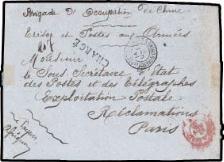 Brigade d'Occupation de Chine
Trésor et Postes aux Armées
CHARGÉ
Monsieur
le Sous Secrétaire d'Etat
des Postes et des Télégraphes
Exploitation Postale
Réclamations
Paris